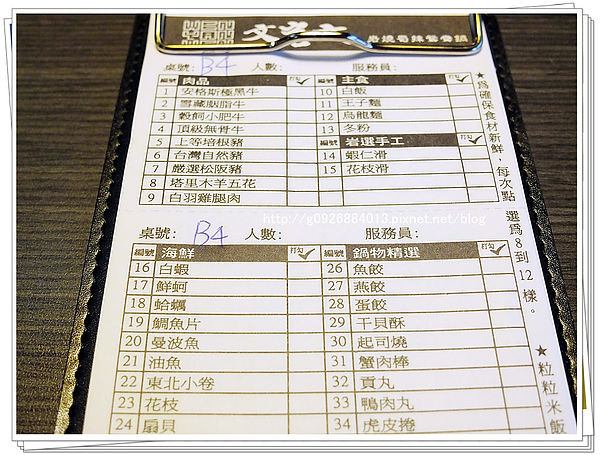 桌號: B4 人數: 服務員:
編號 肉品 打勾
1 安格斯極黑牛
2 雪藏胭脂牛
3 穀飼小肥牛
4 頂級無骨牛
5 上等培根豬
6 台灣自然豬
7 嚴選松阪豬
8 塔里木羊五花
9 白羽雞腿肉
編號 主食 打勾
10 白飯
11 王子麵
12 烏龍麵
13 冬粉
編號 岩選手工 打勾
14 蝦仁滑
15 花枝滑
http://g0926884013.pixnet.net/blog
桌號: B4 人數: 服務員:
編號 海鮮 打勾
16 白蝦
17 鮮蚵
18 蛤蠣
19 鯛魚片
20 曼波魚
21 油魚
22 東北小卷
23 花枝
24 扇貝
編號 鍋物精選 打勾
26 魚餃
27 燕餃
28 蛋餃
29 干貝酥
30 起司燒
31 蟹肉棒
32 貢丸
33 鴨肉丸
34 虎皮捲
★為確保食材新鮮，每次點選為8到12樣。
★粒粒米飯